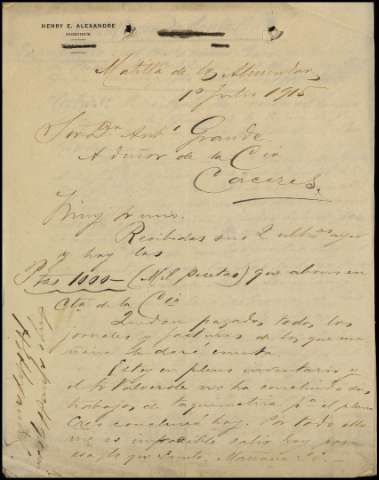 HENRY E. ALEXANDRE
Matilla de los Almendros
1º Julio 1915
Señor Dn Antº Grande
de la Cía
Cáceres.
Muy Sr mio.
Recibidas sus 2 ayer
y hoy las
Ptas 1000— (Mil pesetas) que abono en
Cta de la Cía
Quedan pagados todos los
jornales y facturas de los que ma
ñana le daré cuenta.
Estoy en pleno inventario y
el Sr Valverde no ha concluido sus
trabajos de taquimetría pª el plano
Creo concluirá hoy. Por todo ello
me es imposible salir hoy para
esa lo que siento. Mañana